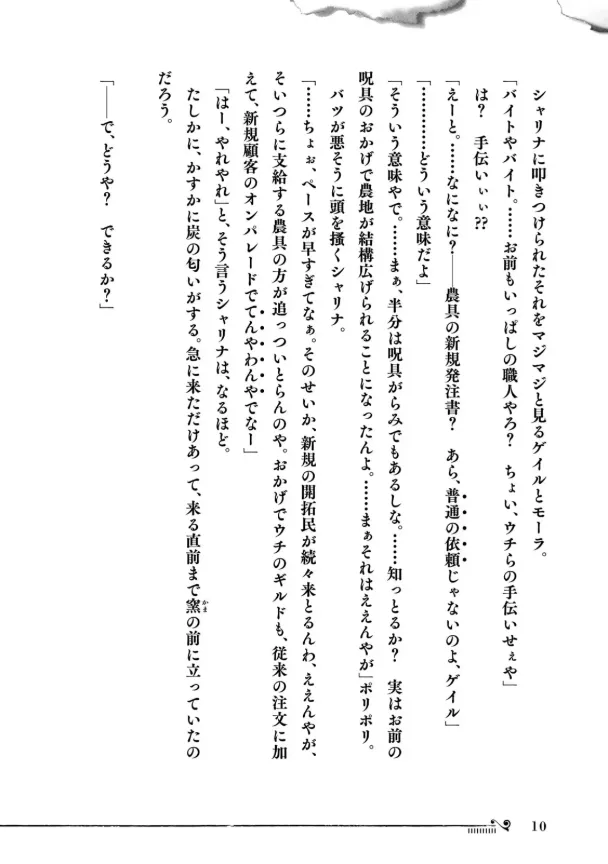 シャリナに叩きつけられたそれをマジマジと見るゲイルとモーラ。
「バイトやバイト。……お前もいっぱしの職人やろ？　ちょい、ウチらの手伝いせぇや」
は？　手伝いぃぃ??
「えーと。……なになに？――農具の新規発注書？　あら、普通の依頼じゃないのよ、ゲイル」
「…………どういう意味だよ」
「そういう意味やで。……まぁ、半分は呪具がらみでもあるしな。……知っとるか？　実はお前の
呪具のおかげで農地が結構広げられることになったんよ。……まぁそれはええんやが」ポリポリ。
バツが悪そうに頭を掻くシャリナ。
「……ちょぉ、ペースが早すぎてなぁ。そのせいか、新規の開拓民が続々来とるんわ、ええんやが、
そいつらに支給する農具の方が追っついとらんのや。おかげでウチのギルドも、従来の注文に加
えて、新規顧客のオンパレードでてんやわんやでなー」
「はー、やれやれ」と、そう言うシャリナは、なるほど。
たしかに、かすかに炭の匂いがする。急に来ただけあって、来る直前まで窯の前に立っていたの
かま
だろう。
「――で、どうや？　できるか？」
10